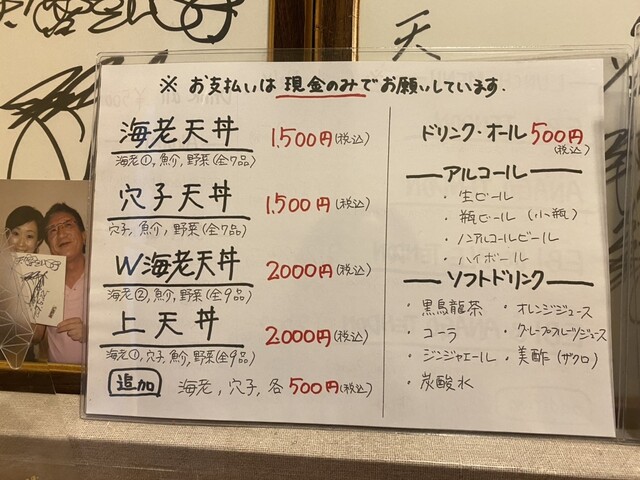 ※ お支払いは 現金のみでお願いしています.
海老天丼 1.500円(税込)
海老①, 魚介, 野菜(全7品)
穴子天丼 1.500円(税込)
穴子, 魚介, 野菜(全7品)
W海老天丼 2000円(税込)
海老②, 魚介, 野菜(全9品)
上天丼 2.000円(税込)
海老①, 穴子, 魚介, 野菜(全9品)
追加 海老, 穴子, 各500円(税込)
ドリンク・オール500円
(税込)
アルコール
・生ビール
・瓶ビール (小瓶)
・ノンアルコールビール
・ハイボール
ソフトドリンク
・黒烏龍茶 ・オレンジジュース
・コーラ ・グレープフルーツジュース
・ジンジャエール ・美酢(ザクロ)
・炭酸水
天